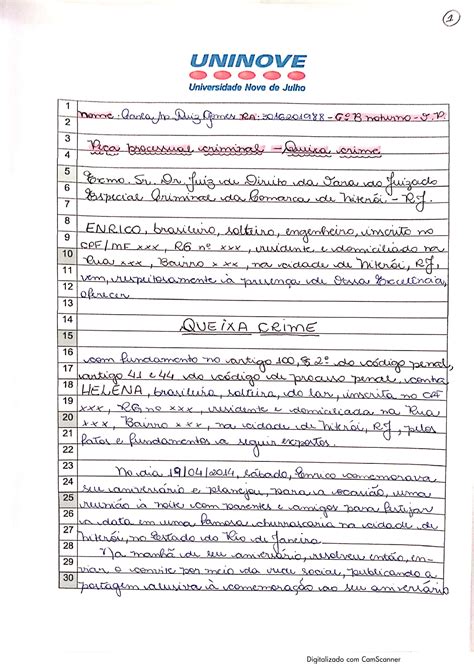 1
UNINOVE
Universidade Nove de Julho
1
2 Nome: Ruiz Gomes RA: 2016201988 - 6º B noturno - J.P.
3 Peça processual criminal - Queixa crime
4
5 Exmo. Sr. Dr. Juiz de Direito da Vara do Juizado
6 Especial Criminal da Comarca de Niterói - RJ.
7
8 ENRICO, brasileiro, solteiro, engenheiro, inscrito no
9 CPF/MF xxx, RG nº xxx, residente e domiciliado na
10 Rua xxx, Bairro xxx, na cidade de Niterói, RJ,
11 vem, respeitosamente à presença de Vossa Excelência,
12 oferecer
13
14 QUEIXA CRIME
15
16 com fundamento no artigo 100, § 2º do código penal,
17 artigo 41 e 44 do código de processo penal, contra
18 HELENA, brasileira, solteira, do lar, inscrita no CPF
19 xxx, RG nº xxx, residente e domiciliada na Rua
20 xxx, Bairro xxx, na cidade de Niterói, RJ, pelos
21 fatos e fundamentos a seguir expostos.
22
23 No dia 19/04/2014, sábado, Enrico comemorava
24 seu aniversário e planejou, para a ocasião, uma
25 reunião à noite com parentes e amigos para festejar
26 a data em uma famosa churrascaria na cidade de
27 Niterói, no Estado do Rio de Janeiro.
28 Na manhã de seu aniversário, resolveu então, en-
29 viar o convite por meio da rede social, publicando a
30 postagem alusiva à comemoração ao seu aniversário
Digitalizado com CamScanner